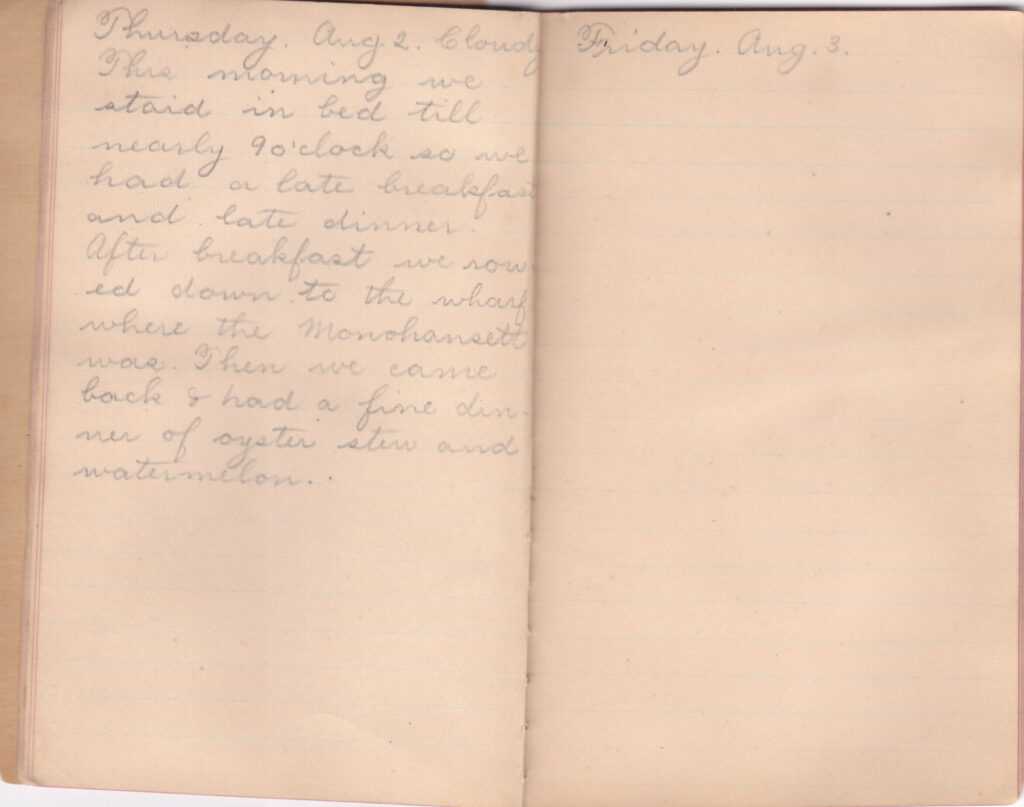 Thursday. Aug. 2. Cloudy
This morning we
staid in bed till
nearly 9 o'clock so we
had a late breakfast
and late dinner.
After breakfast we row-
ed down to the wharf
where the Monohansett
was. Then we came
back & had a fine din-
ner of oyster stew and
watermelon.
Friday. Aug. 3.